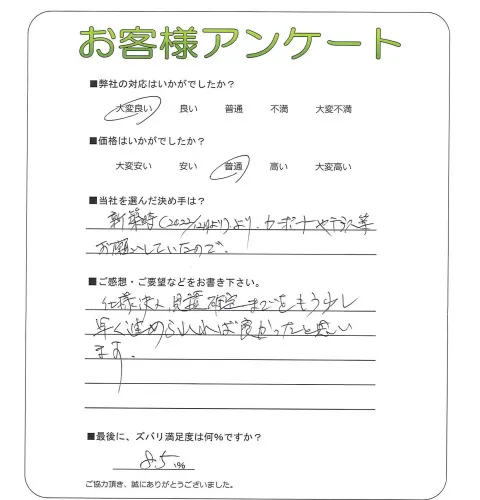 お客様アンケート
■弊社の対応はいかがでしたか？
大変良い 良い 普通 不満 大変不満
■価格はいかがでしたか？
大変安い 安い 普通 高い 大変高い
■当社を選んだ決め手は？
新築時(2022/12月より)より、カーポートやテラス等
お願いしていたので。
■ご感想・ご要望などをお書き下さい。
仕様決め、見積確定までをもう少し
早く進められれば良かったと思い
ます。
■最後に、ズバリ満足度は何%ですか？
85 %
ご協力頂き、誠にありがとうございました。